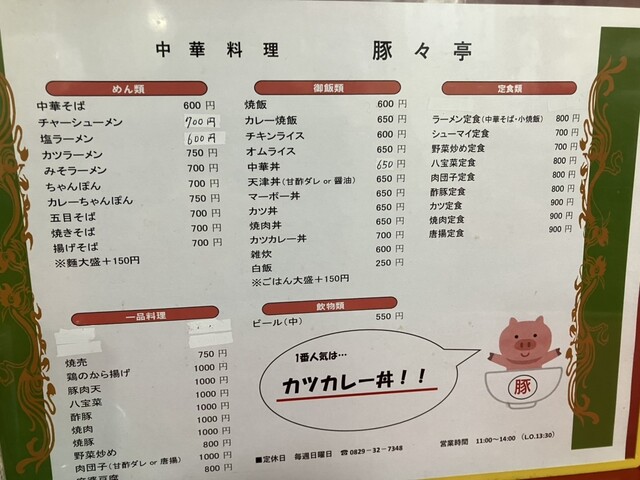 中華料理 豚々亭
めん類
中華そば 600円
チャーシューメン 700円
塩ラーメン 600円
カツラーメン 750円
みそラーメン 700円
ちゃんぽん 700円
カレーちゃんぽん 750円
五目そば 700円
焼きそば 700円
揚げそば 700円
※麺大盛+150円
御飯類
焼飯 600円
カレー焼飯 650円
チキンライス 650円
オムライス 650円
中華丼 650円
天津丼(甘酢ダレor醤油) 650円
マーボー丼 650円
カツ丼 650円
焼肉丼 650円
カツカレー丼 700円
雑炊 600円
白飯 250円
※ごはん大盛+150円
定食類
ラーメン定食(中華そば・小焼飯) 800円
シューマイ定食 700円
野菜炒め定食 700円
八宝菜定食 800円
肉団子定食 800円
酢豚定食 800円
カツ定食 900円
焼肉定食 900円
唐揚定食 900円
一品料理
焼売 750円
鶏のから揚げ 1000円
豚肉天 1000円
八宝菜 1000円
酢豚 1000円
焼肉 1000円
焼豚 1000円
野菜炒め 800円
肉団子(甘酢ダレor唐揚) 1000円
麻婆豆腐 800円
飲物類
ビール(中) 550円
1番人気は…
カツカレー丼!!
豚
■定休日 毎週日曜日 ☎0829-32-7348
営業時間 11:00~14:00 (L.O.13:30)